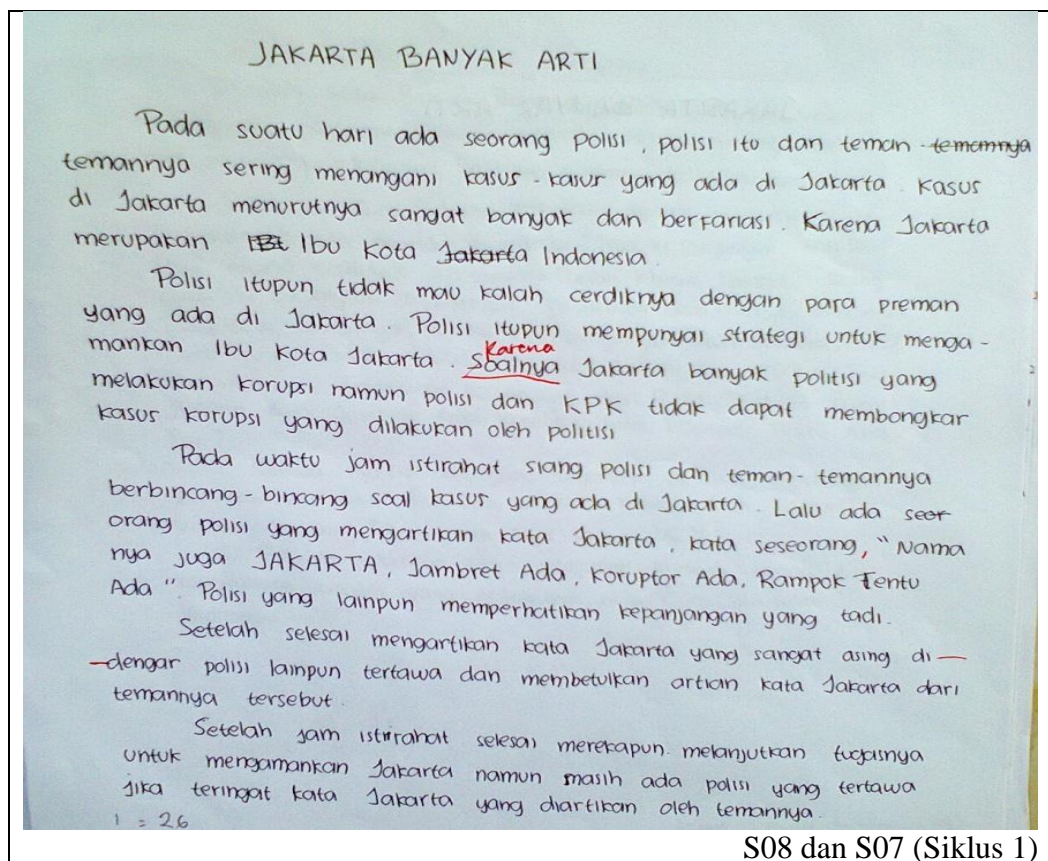 JAKARTA BANYAK ARTI
Pada suatu hari ada seorang polisi, polisi itu dan teman-temannya
temannya sering menangani kasus-kasus yang ada di Jakarta. Kasus
di Jakarta menurutnya sangat banyak dan berfariasi. Karena Jakarta
merupakan Ibu Kota Jakarta Indonesia.
Polisi itupun tidak mau kalah cerdiknya dengan para preman
yang ada di Jakarta. Polisi itupun mempunyai strategi untuk menga-
Karena
mankan Ibu Kota Jakarta. Soalnya Jakarta banyak politisi yang
melakukan korupsi namun polisi dan KPK tidak dapat membongkar
kasus korupsi yang dilakukan oleh politisi
Pada waktu jam istirahat siang polisi dan teman-temannya
berbincang-bincang soal kasus yang ada di Jakarta. Lalu ada seor
orang polisi yang mengartikan kata Jakarta, kata seseorang, "Nama
nya juga JAKARTA, Jambret Ada, Koruptor Ada, Rampok Tentu
Ada". Polisi yang lainpun memperhatikan kepanjangan yang tadi.
Setelah selesai mengartikan kata Jakarta yang sangat asing di
dengar polisi lainpun tertawa dan membetulkan artian kata Jakarta dari
temannya tersebut.
Setelah jam istirahat selesai merekapun melanjutkan tugasnya
untuk mengamankan Jakarta namun masih ada polisi yang tertawa
jika teringat kata Jakarta yang diartikan oleh temannya.
1 = 26
S08 dan S07 (Siklus 1)